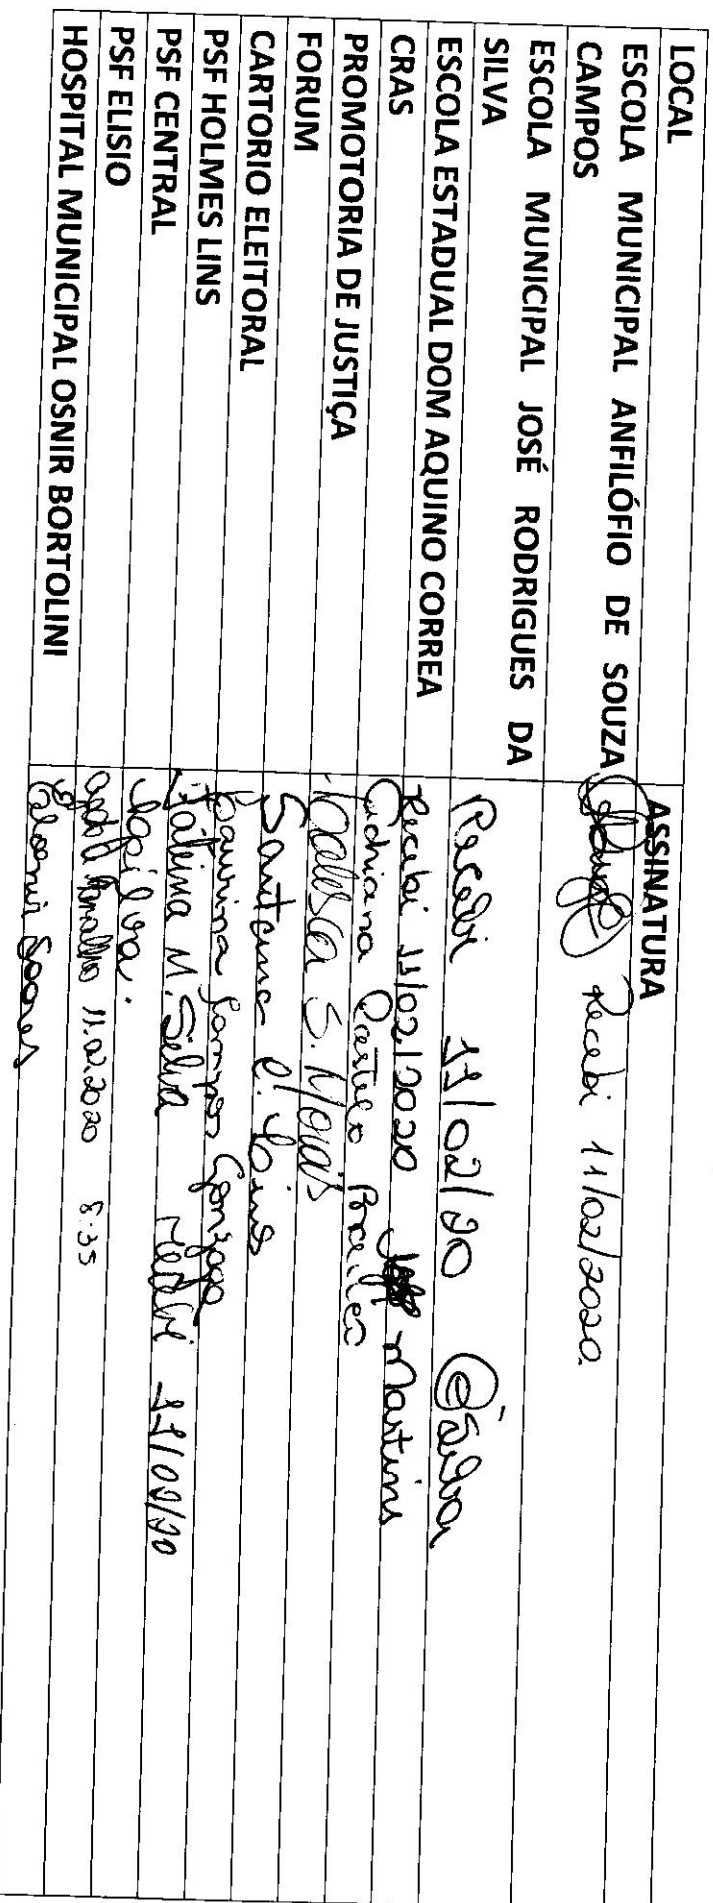 LOCAL ASSINATURA
ESCOLA MUNICIPAL ANFILÓFIO DE SOUZA
CAMPOS Recebi 11/02/2020.
ESCOLA MUNICIPAL JOSÉ RODRIGUES DA
SILVA Recebi 11/02/20 Silva
ESCOLA ESTADUAL DOM AQUINO CORREA Recebi 11/02/2020 Martins
CRAS
PROMOTORIA DE JUSTIÇA S. Morais
FORUM Santana
CARTORIO ELEITORAL Gonzaga
PSF HOLMES LINS M. Silva Recebi 11/02/20
PSF CENTRAL
PSF ELISIO 11.02.2020 8:35
HOSPITAL MUNICIPAL OSNIR BORTOLINI Soares